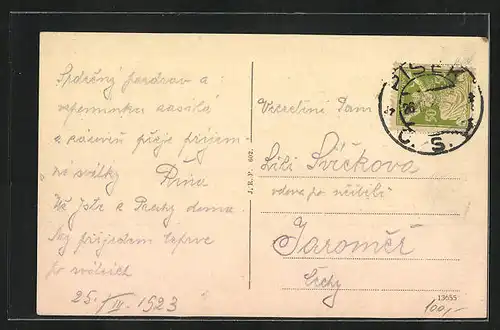 Srdečný pozdrav a
vzpomínku zasílá
a zároveň přeje příjem-
né svátky
Už jste z Prahy doma
My přijedem teprve
po svátcích
25./IV. 1923
J. R. P. 602.
Velectěná Paní
Lili Svíčkova
vdova po učiteli
Jaroměř
Čechy
PÍSEK
Č. S.
50
13655
100,-